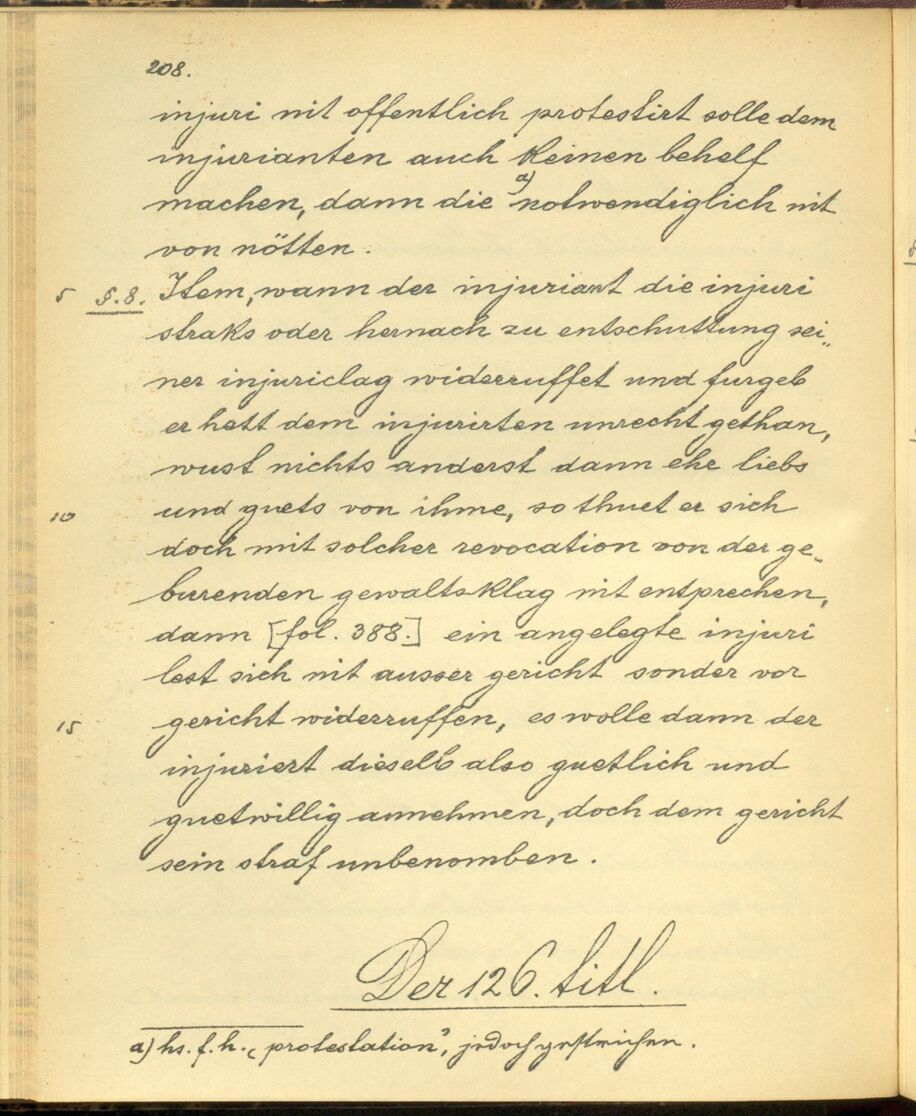 208.
injuri nit offentlich protestirt solle dem
injurianten auch keinen behelf
machen, dann die a) notwendiglich nit
von nötten.
5 §.8. Item, wann der injuriant die injuri
straks oder hernach zu entschuttung sei„
ner injuriclag widerruffet und furgeb
er hett dem injurirten unrecht gethan,
wust nichts anderst dann ehe liebs
10 und guets von ihme, so thuet er sich
doch mit solcher revocation von der ge„
burenden gewaltsklag nit entprechen,
dann [fol. 388.] ein angelegte injuri
lest sich nit ausser gericht sonder vor
15 gericht widerruffen, es wolle dann der
injuriert dieselb also guetlich und
guetwillig annehmen, doch dem gericht
sein straf unbenomben.
Der 126. titl.
a) hs. f. h. „protestation", jedoch gestrichen.